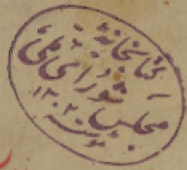 کتابخانهٔ
مجلس شورای ملی
سنه ۱۳۰۲